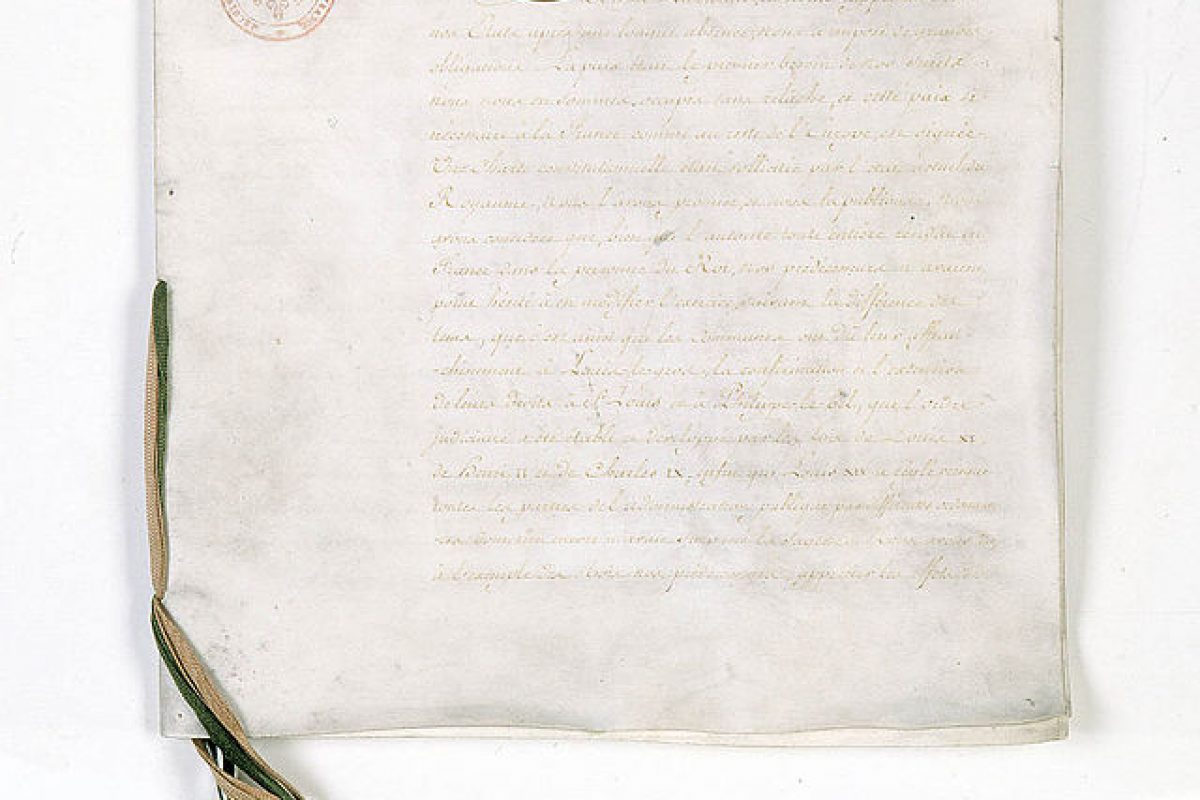 nos Etats après une longue absence, nous a imposé de grandes
obligations. La paix était le premier besoin de nos sujets
nous nous en sommes occupés sans relâche, et cette paix si
nécessaire à la France comme au reste de l'Europe, est signée.
Une Charte constitutionnelle était sollicitée par l'état actuel du
Royaume, nous l'avons promise, et nous la publions. Nous
avons considéré que, bien que l'autorité toute entière résidât en
France dans la personne du Roi, nos prédécesseurs n'avaient
point hésité à en modifier l'exercice, suivant la différence des
tems, que c'est ainsi que les Communes ont dû leur affran
chissement à Louis le gros, la confirmation et l'extension
de leurs droits à St Louis et à Philippe le Bel, que l'ordre
judiciaire a été établi et développé par les loix de Louis XI,
de Henri II et de Charles IX, enfin que Louis XIV a réglé presque
toutes les parties de l'administration publique par différentes ordonnan
ces dont rien encore n'avait surpassé la sagesse. Nous avons dû
à l'exemple des Rois nos prédécesseurs, apprécier les effets des